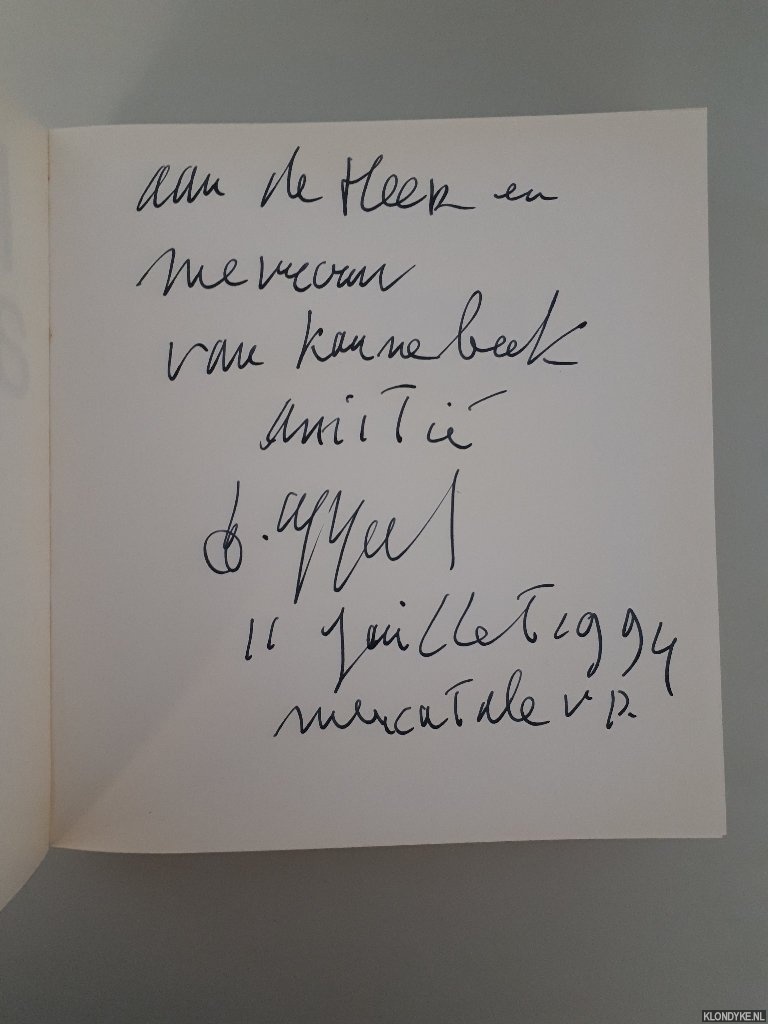 aan de Heer en
mevrouw
van Kannebeek
amitié
appel
11 juillet 1994
mercatale v p.
KLONDYKE.NL